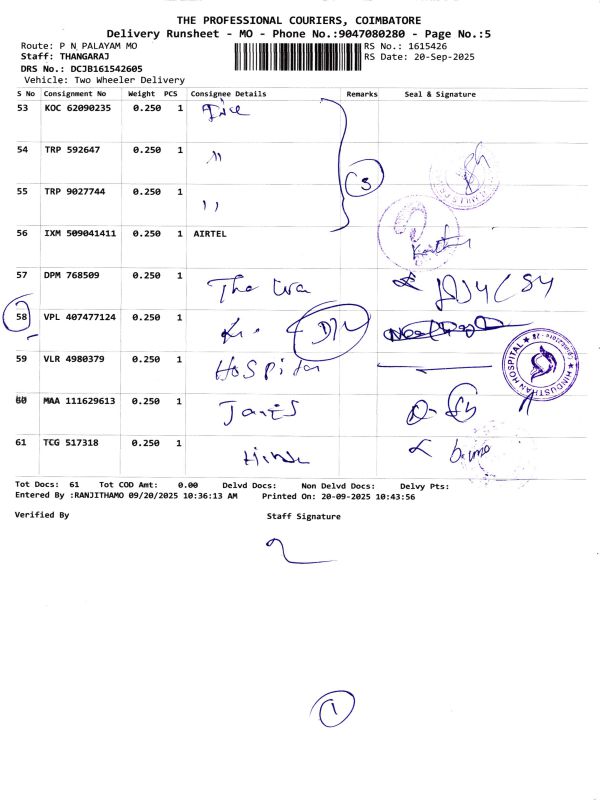 THE PROFESSIONAL COURIERS, COIMBATORE
Delivery Runsheet - MO - Phone No.:9047080280 - Page No.:5
Route: P N PALAYAM MO
RS No.: 1615426
Staff: THANGARAJ
RS Date: 20-Sep-2025
DRS No.: DCJB161542605
Vehicle: Two Wheeler Delivery
S No Consignment No Weight PCS Consignee Details Remarks Seal & Signature
53 KOC 62090235 0.250 1
54 TRP 592647 0.250 1 "
55 TRP 9027744 0.250 1 "
(3)
56 IXM 509041411 0.250 1 AIRTEL
57 DPM 768509 0.250 1
58 VPL 407477124 0.250 1
59 VLR 4980379 0.250 1 Hospital
HINDUSTHAN HOSPITAL
60 MAA 111629613 0.250 1
61 TCG 517318 0.250 1
Tot Docs: 61 Tot COD Amt: 0.00 Delvd Docs: Non Delvd Docs: Delvy Pts:
Entered By :RANJITHAMO 09/20/2025 10:36:13 AM Printed On: 20-09-2025 10:43:56
Verified By Staff Signature
1